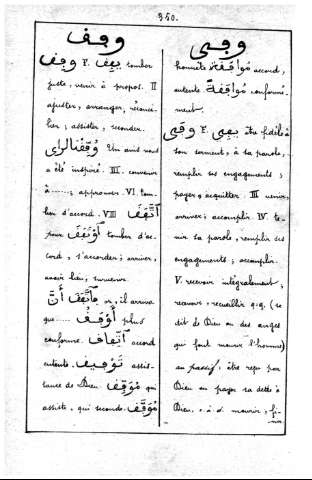 350.
وفف
وفف F. يفف tomber
juste, venir à propos. II
ajuster, arranger, réconci-
lier; assister, seconder.
وُفِّفْنَالِرَاي Un avis nous
a été inspiré. III. convenir
à.....; approuver. VI. tom-
ber d'accord. VIII اِتَّفَفَ
pour اَوْتَفَفَ tomber d'ac-
cord, s'accorder; arriver,
avoir lieu, survenir.
اِتَّفَفَ أَنَّ or, il arriva
que..... أَوْفَفُ plus
conforme. اِتِّفَاف accord
entente. تَوْفِيف assis-
tance de Dieu. مُوَفِّف qui
assiste, qui seconde. مُوَفَّف
وفى
honnête مُوَافَفَة accord,
entente مُوَافَفَةً conformé-
ment.
وفى F. يفى être fidèle à
son serment, à sa parole,
remplir ses engagements;
payer, acquitter. III venir,
arriver; accomplir. IV. te-
nir sa parole, remplir ses
engagements; accomplir.
V. recevoir intégralement;
recevoir, recueillir q.q. (se
dit de Dieu ou des anges
qui font mourir l'homme)
au passif, être reçu par
Dieu ou payer sa dette à
Dieu, c. à d. mourir, fi-
nir